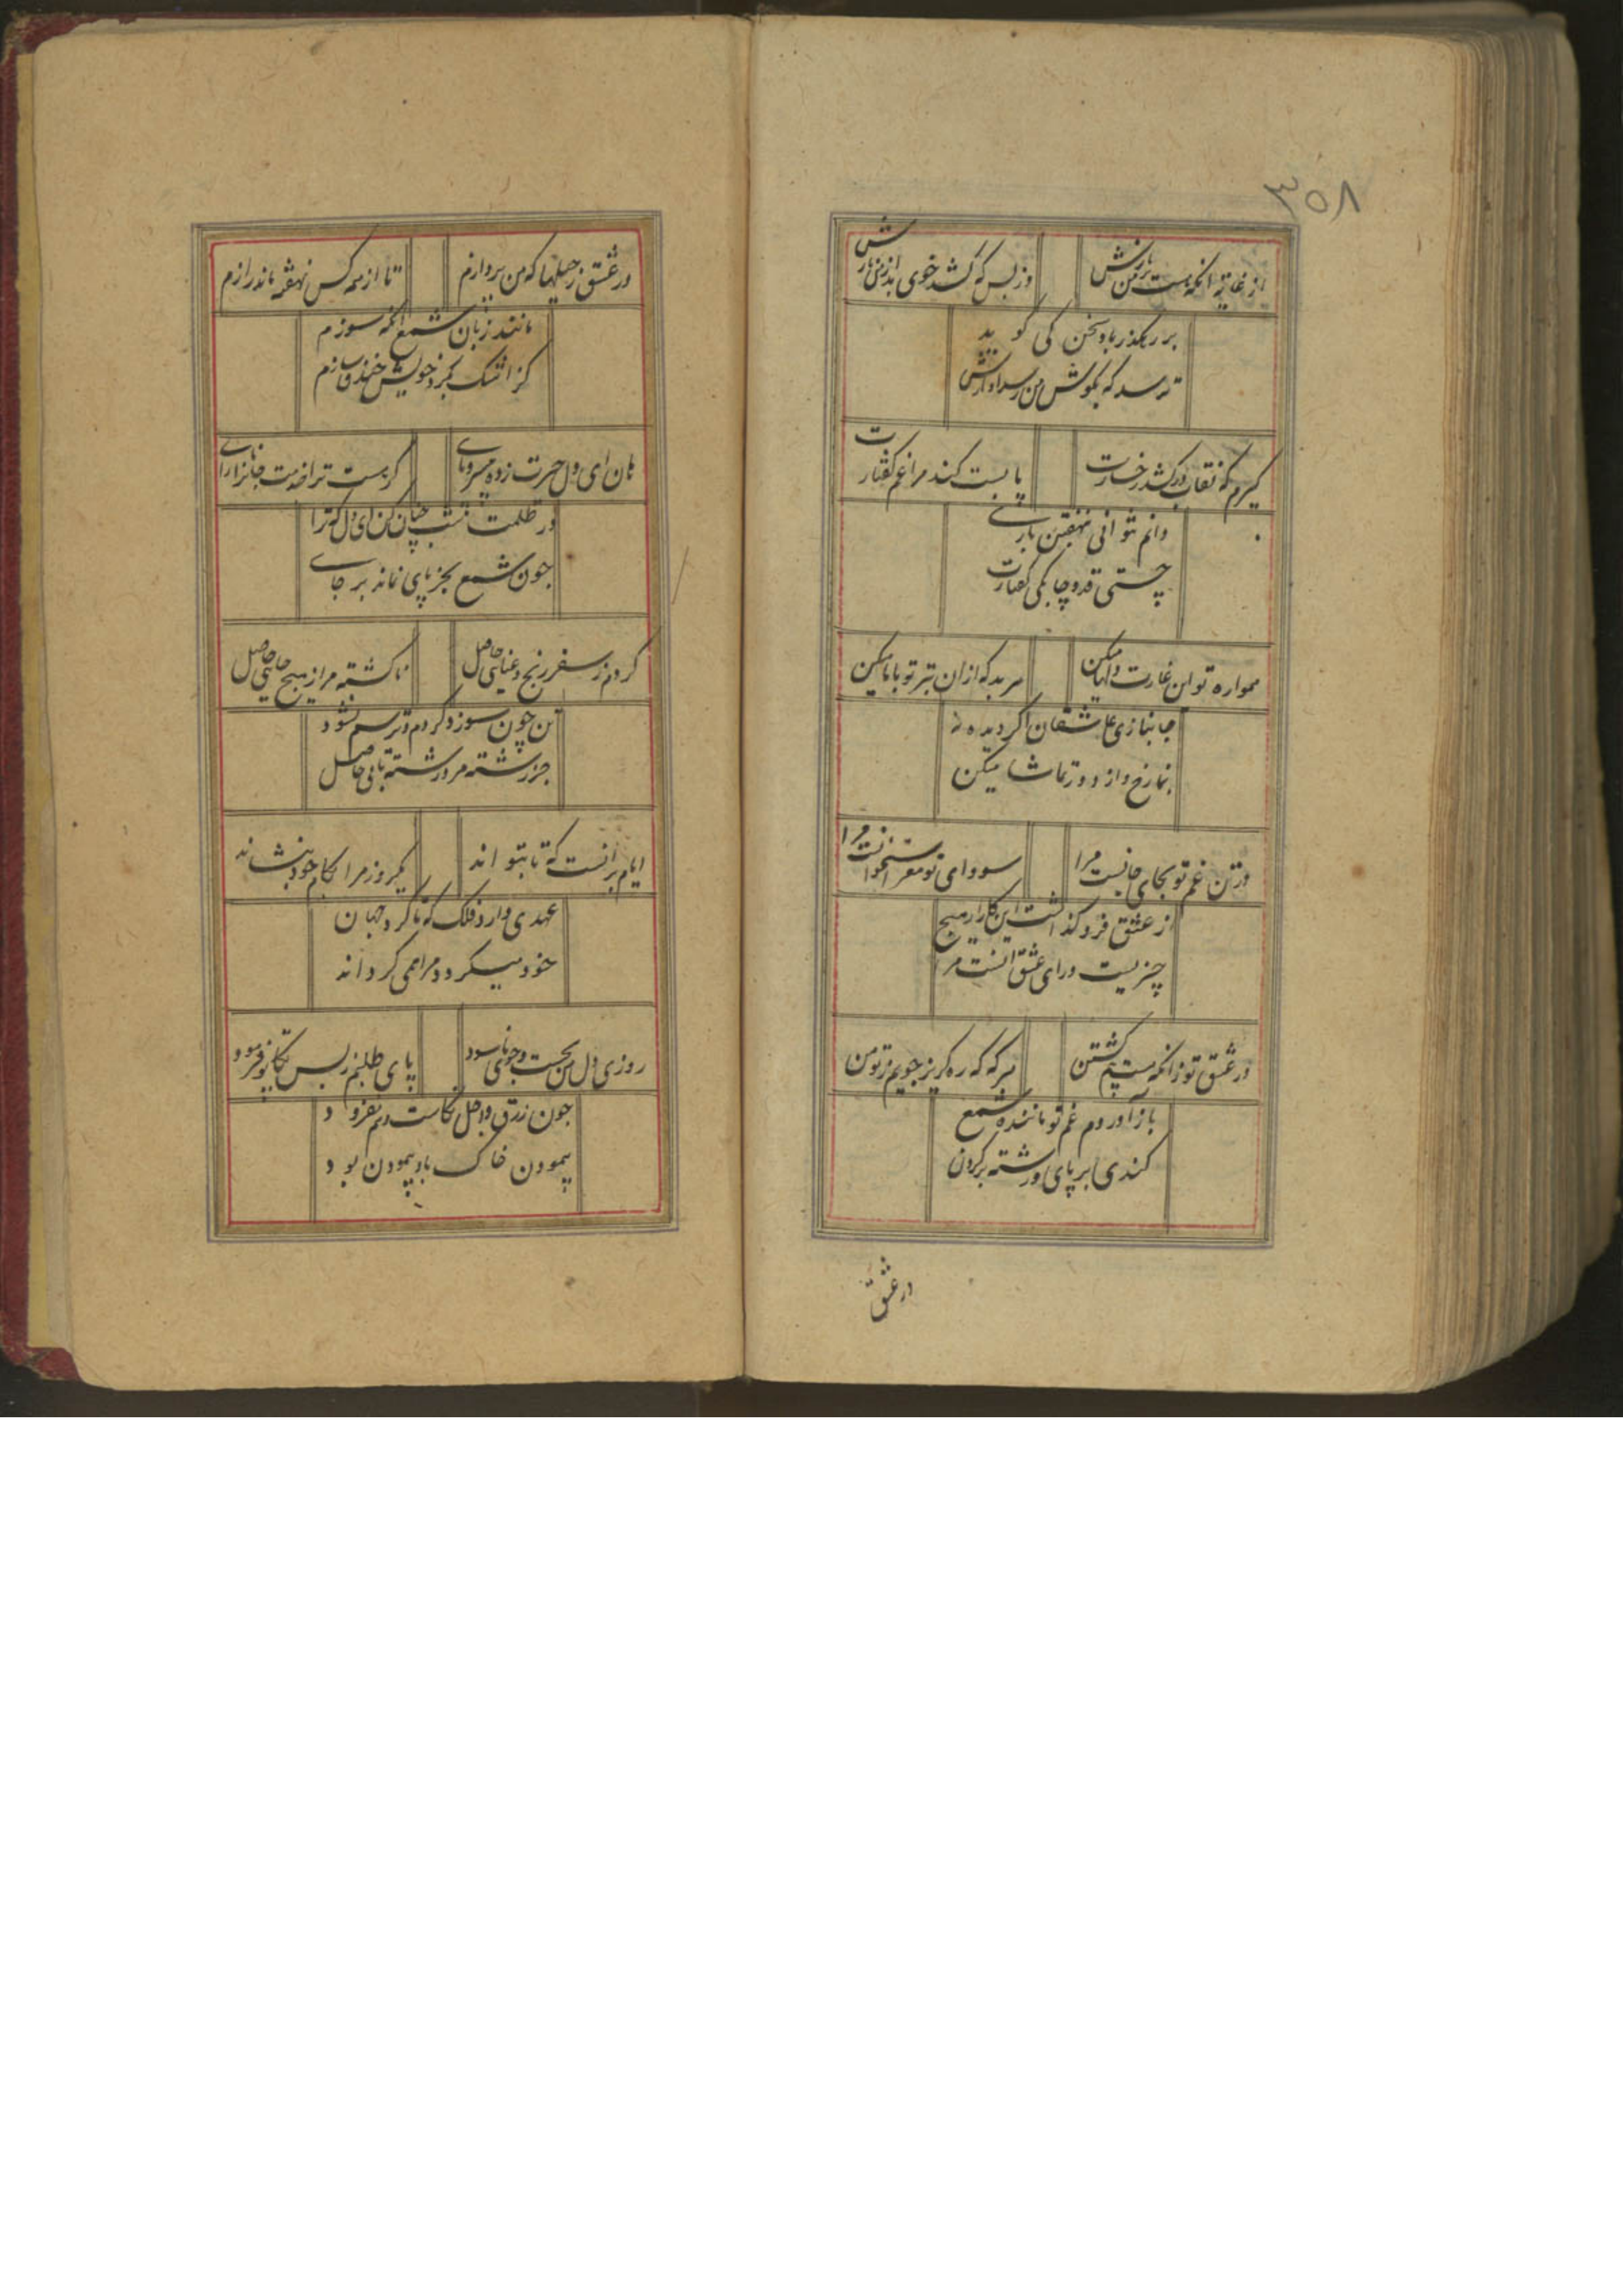 ۳۵۸
از غایت آنکه هست بر من نازش
وز بس که کشد خوی بد از من بازش
بر رهگذر باد سخن کی گوید
ترسد که بگوش من رسد آوازش
گیرم که نقاب درکشد رخسارت
پا بست کند مرا غم گفتارت
دانم نتوانی نهفتن باری
چستی قد و چابکی رفتارت
همواره تو این غارت دلها میکن
هر بد که ازان بتر تو با ما میکن
جانبازی عاشقان اگر دیده نه
بنما رخ و از دور تماشا میکن
در تن غم تو بجای جانست مرا
سودای تو مغز استخوانست مرا
از عشق فرو گذاشت این کار از هیچ
چیزیست ورای عشق آنست مرا
در عشق تو زانکه هستیم کشتن
هرگه که ره گریز جویم ز تو من
باز آوردم غم تو ماننده شمع
کندی بر پای و رشته بر گردن
در عشق
در عشق ز حیلها که من پردازم
تا از همه کس نهفته ماند رازم
مانند زبان شمع آنگه سوزم
کز اشک بگرد خویش خندق سازم
هان ای دل حیرت زده بی سر و پای
گر هست ترا خدمت جانان رای
در ظلمت شب چنان کن ای دل که ترا
چون شمع بجز پای نماند بر جای
کردم ز سفر رنج و عنایی حاصل
ناگشته مرا ز هیچ جایی حاصل
تن چون سوزد گردم و ترسم نشود
جز رشته مرا ز رشته تابی حاصل
ایام برآنست که تا بتواند
یکروز مرا بکام خود ننشاند
عهدی دارد فلک که تا گرد جهان
خود میگردد مرا همی گرداند
روزی دل من بجست و جوی ناسود
پای طلبم ز بس تکاپو فرسود
چون رزق و اجل نکاست و هم نفزود
پیمودن خاک باد پیمودن بود